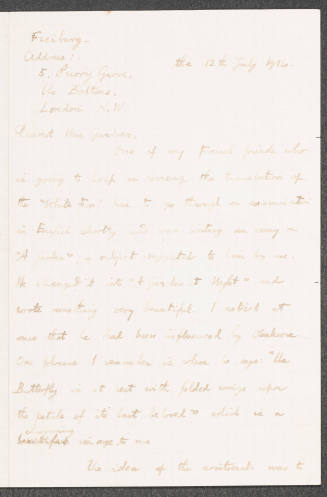 Freiburg
Address:
5, Priory Grove,
The Boltons,
London S.W.
the 12th July 1914.
Dearest Mrs
One of my French friends who
is going to help in revising the translation of
the "White Fox" has to go through an examination
in English shortly and was writing an essay on
"A garden" a subject suggested to him by me.
He changed it into "A garden at Night" and
wrote something very beautiful. I noticed at
once that he had been influenced by Okakura.
One phrase I remember is where he says: "The
Butterfly is at rest with folded wings upon
the petals of its last beloved" which is a
charming
beautiful image to me
The idea of the aristocrat was to